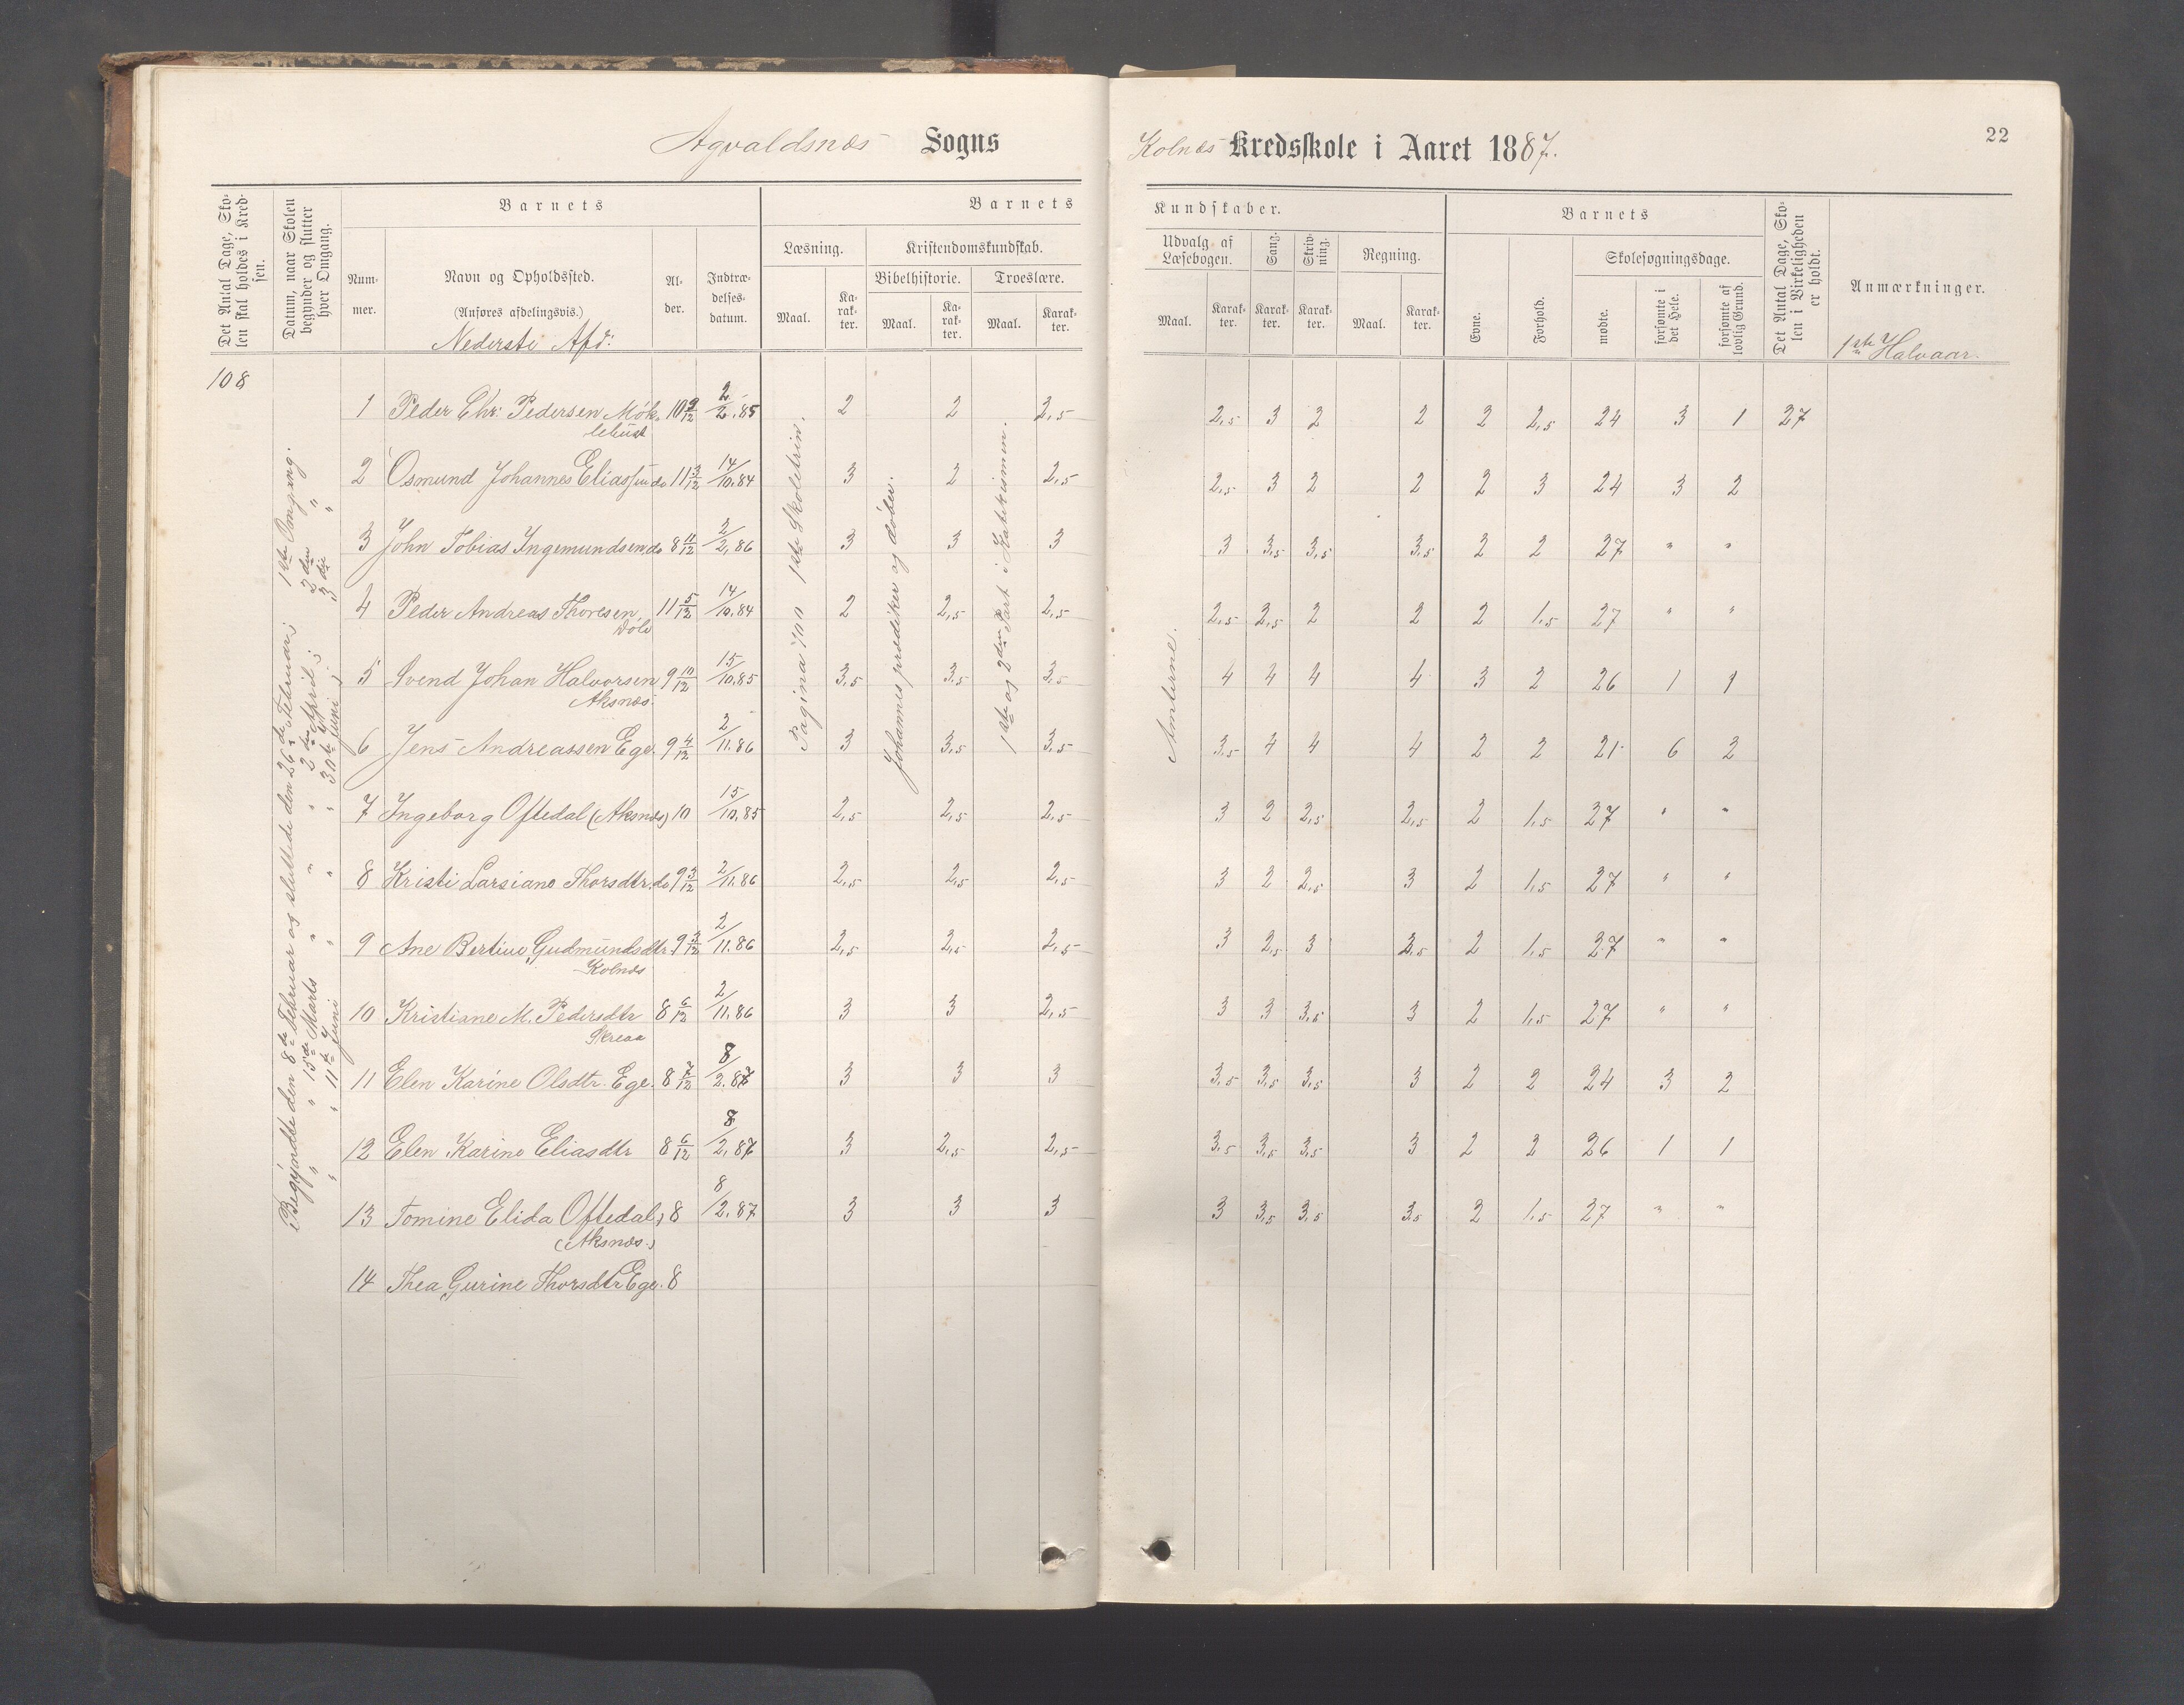 Agvaldsnæs Sogns
Kolnæs Kredsskole i Aaret 1887.
22
Det Antal Dage, Skolen skal holdes i Kredsen.
Datum, naar Skolen begynder og slutter hver Omgang.
Barnets
Nummer.
Navn og Opholdssted.
(Anføres afdelingsvis.)
Nederste Afd:
Alder.
Indtrædelsesdatum.
Barnets
Læsning.
Maal.
Karakter.
Kristendomskundskab.
Bibelhistorie.
Maal.
Karakter.
Troeslære.
Maal.
Karakter.
Kundskaber.
Udvalg af Læsebogen.
Maal.
Karakter.
Sang.
Karakter.
Skrivning.
Karakter.
Regning.
Maal.
Karakter.
Barnets
Evne.
Forhold.
Skolesøgningsdage.
mødte.
forsømte i det Hele.
forsømte af lovlig Grund.
Det Antal Dage, Skolen i Virkeligheden er holdt.
Anmærkninger.
1ste Halvaar.
108
Begyndte den 8de Februar og sluttede den 26de Februar; 1ste Omgang.
" " 15de Marts " " " 2den April; 2den "
" " 11te Juni " " " 30te Juni; 3die "
Pagina 100 1ste Skoletrin.
Johannes prædiker og døber.
1ste og 2den Part i Katekismen.
Amterne.
1 Peder Chr: Pedersen Møk- 10 9/12 2/2.85 2 2 2,5 2,5 3 2 2 2 2,5 24 3 1 27
lebust
2 Osmund Johannes Eliassen do 11 3/12 14/10.84 3 2 2,5 2,5 3 2 2 2 3 24 3 2
3 John Tobias Ingemundsen do 8 11/12 2/2.86 3 3 3 3 3,5 3,5 3,5 2 2 27 " "
4 Peder Andreas Thoresen 11 5/12 14/10.84 2 2,5 2,5 2,5 2,5 2 2 2 1,5 27 " "
5 Svend Johan Halvorsen 9 10/12 15/10.85 3,5 3,5 3,5 4 4 4 4 3 2 26 1 1
Aksnæs.
6 Jens Andreassen Ege. 9 4/12 2/11.86 3 3,5 3,5 3,5 4 4 4 2 2 21 6 2
7 Ingeborg Oftedal (Aksnæs) 10 15/10.85 2,5 2,5 2,5 3 2 2,5 2,5 2 1,5 27 " "
8 Kristi Larsiane Thorsdtr. do 9 3/12 2/11.86 2,5 2,5 2,5 3 2 2,5 3 2 1,5 27 " "
9 Ane Bertine Gudmundsdtr. 9 3/12 2/11.86 2,5 2,5 2,5 3 2,5 3 2,5 2 1,5 27 " "
Kolnæs
10 Kristiane M. Pedersdtr 8 6/12 2/11.86 3 3 2,5 3 3 3,5 3 2 1,5 27 " "
Skreaa
11 Elen Karine Olsdtr. Ege. 8 7/12 8/2.87 3 3 3 3,5 3,5 3,5 3 2 2 24 3 2
12 Elen Karine Eliasdtr 8 6/12 8/2.87 3 2,5 2,5 3,5 3,5 3,5 3 2 2 26 1 1
13 Tomine Elida Oftedal, 8 8/2.87 3 3 3 3 3,5 3,5 3,5 2 1,5 27 " "
(Aksnæs.)
14 Thea Gurine Thorsdtr Ege. 8